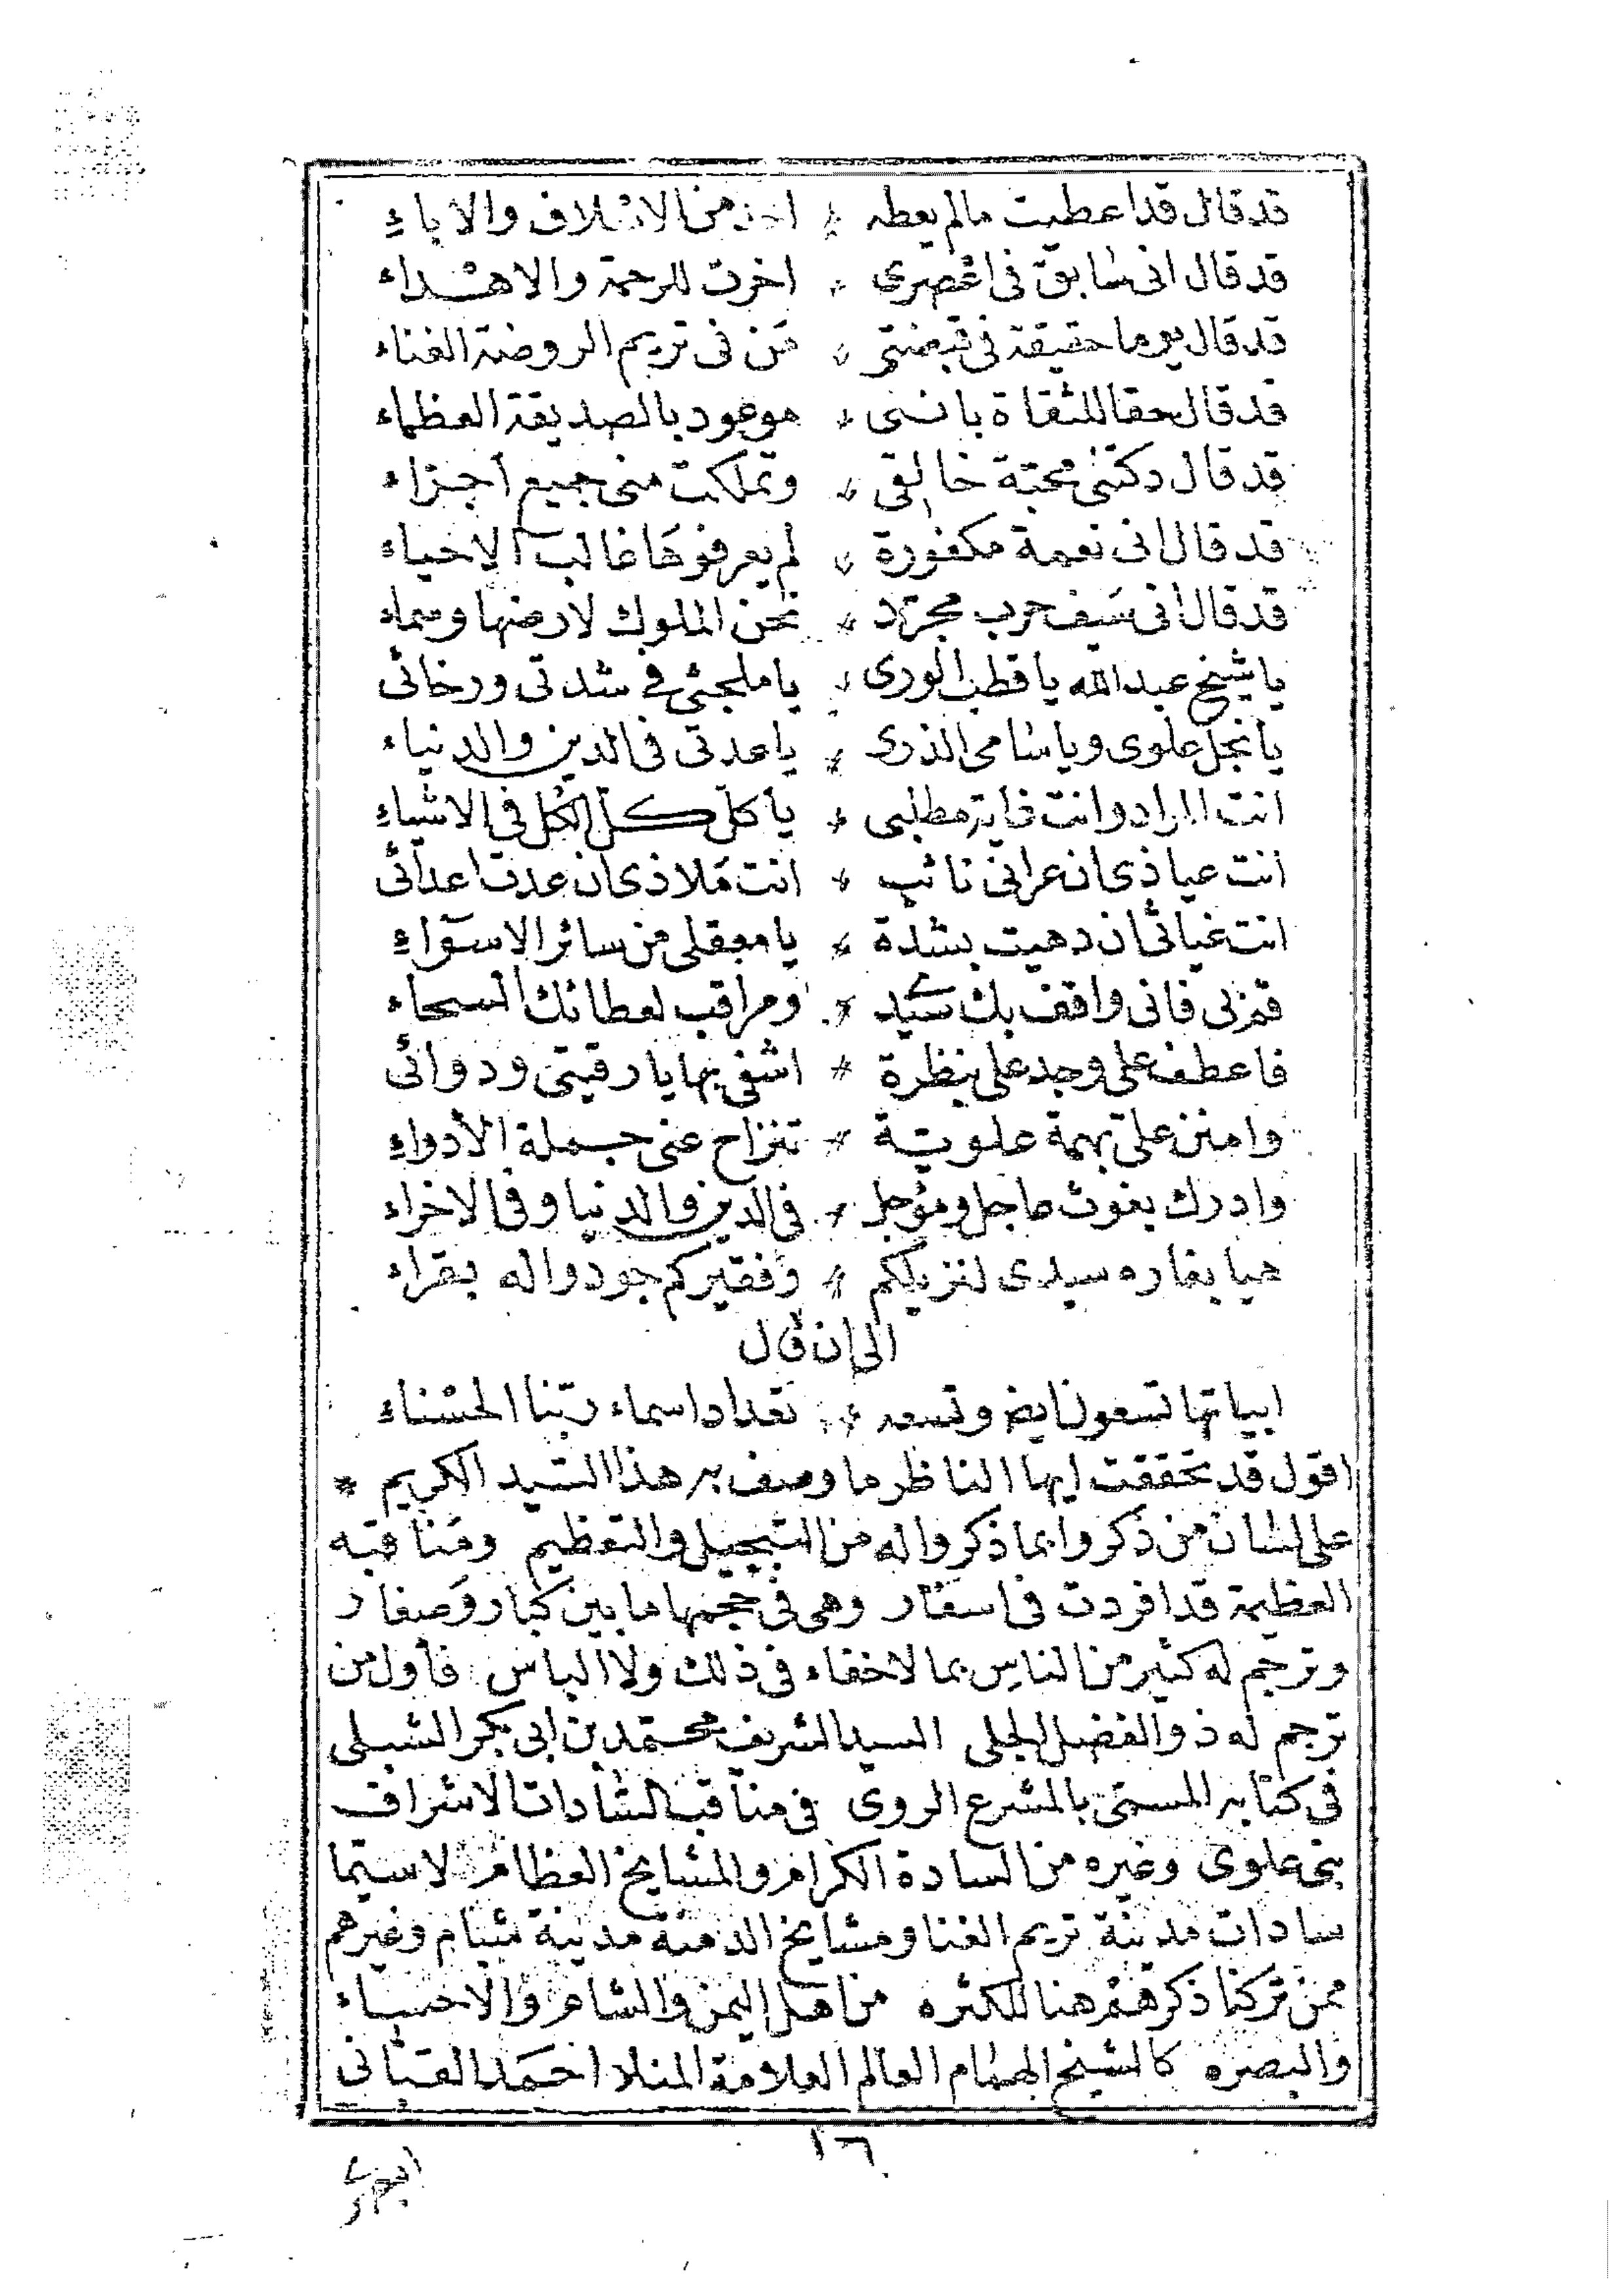 قد قال قد اعطيت مالم يعطه * احد من الاسلاف والاباء
قد قال انى سابق فى اعصرى * اخرت للرحمة والاهداء
قد قال يوما حقيقة فى قبضتى * من فى تريم الروضة الغناء
قد قال حقا للثقاة باننى * موعود بالصديقة العظماء
قد قال دكتنى محبة خالقى * وتملكت منى جميع اجزاء
قد قال انى نعمة مكفورة * لم يعرفوها غالب الاحياء
قد قال انى سيف حرب مجرد * نحن الملوك لارضها وسماء
يا شيخ عبد الله يا قطب الورى * يا ملجئى في شدتى ورخائى
يا نجل علوى ويا سامى الذرى * يا عدتى فى الدين والدنياء
انت المراد وانت غاية مطلبى * يا كل كل الكل فى الاشياء
انت عياذى ان عرانى نائب * انت ملاذى ان عدت اعدائى
انت غياثى ان دهيت بشدة * يا معقلى من سائر الاسواء
قم بى فانى واقف بك سيد * ومراقب لعطائك السحاء
فاعطف على وجد على بنظرة * اشفى بها يا رقيتى ودوائى
وامنن على بهمة علوية * تنزاح عنى جملة الأدواء
وادرك بغوث عاجل ومؤجل * فى الدين والدنيا وفى الاخراء
هيا بغاره سيدى لنزيلكم * وفقيركم جودوا له بقراء
الى ان قال
ابياتها تسعون ايضا وتسعه * تعداد اسماء ربنا الحسناء
اقول قد تحققت ايها الناظر ما وصف به هذا السيد الكريم *
على لسان من ذكروا بما ذكروا له من التبجيل والتعظيم ومناقبه
العظيمة قد افردت فى اسفار وهى فى حجمها ما بين كبار وصغار
وترجم له كثير من الناس بما لا خفاء فى ذلك ولا الباس فأول من
ترجم له ذو الفضل الجلى السيد الشريف محمد بن ابى بكر الشبلى
فى كتابه المسمى بالمشرع الروى فى مناقب السادات الاشراف
بنى علوى وغيره من السادة الكرام والمشايخ العظام لا سيما
سادات مدينة تريم الغنا ومشايخ الدمنة مدينة شبام وغيرهم
ممن تركنا ذكرهم هنا للكثره من اهل اليمن والشام والاحساء
والبصره كالشيخ الهمام العالم العلامة المنلا احمد القبانى
١٦